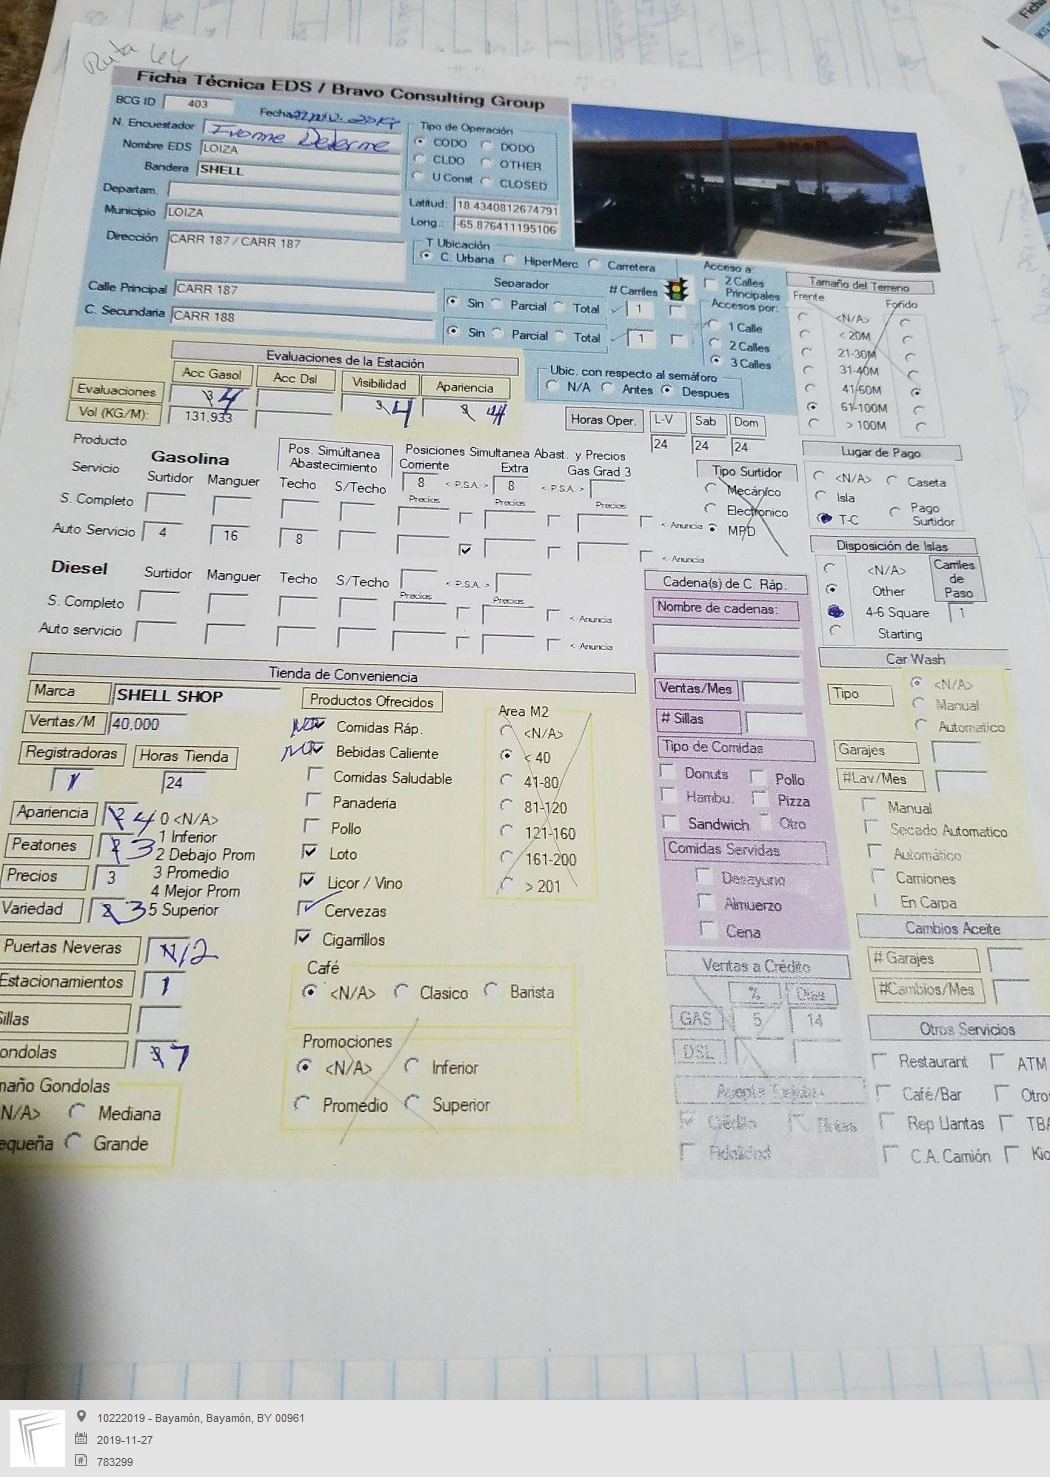 Ruta 44
Ficha Técnica EDS / Bravo Consulting Group
BCG ID 403
Fecha 2019
N. Encuestador Ivonne
Nombre EDS LOIZA
Bandera SHELL
Departam.
Municipio LOIZA
Dirección CARR 187 / CARR 187
Calle Principal CARR 187
C. Secundaria CARR 188
Tipo de Operación
CODO DODO
CLDO OTHER
U Const CLOSED
Latitud: 18.4340812674791
Long.: -65.876411195106
T Ubicación
C. Urbana HiperMerc Carretera
Separador # Carriles
Sin Parcial Total 1
Sin Parcial Total 1
Acceso a:
2 Calles Principales
Accesos por:
1 Calle
2 Calles
3 Calles
Ubic. con respecto al semáforo
N/A Antes Despues
Tamaño del Terreno
Frente Fondo
<N/A>
< 20M
21-30M
31-40M
41-60M
61-100M
> 100M
Evaluaciones de la Estación
Acc Gasol Acc Dsl Visibilidad Apariencia
Evaluaciones 3 4 3 4 3 4
Vol (KG/M): 131,933
Horas Oper. L-V Sab Dom
24 24 24
Producto
Servicio
Gasolina
Surtidor Manguer
Pos. Simúltanea Abastecimiento
Techo S/Techo
Posiciones Simultanea Abast. y Precios
Corriente Extra Gas Grad 3
8 < P.S.A. > 8 < P.S.A. >
Precios Precios Precios
S. Completo < Anuncia
Auto Servicio 4 16 8 < Anuncia
Tipo Surtidor
Mecánico
Electronico
MPD
Lugar de Pago
<N/A> Caseta
Isla Pago Surtidor
T-C
Disposición de Islas
<N/A>
Other
4-6 Square
Starting
Carriles de Paso
1
Diesel
Surtidor Manguer Techo S/Techo < P.S.A. >
Precios Precios
S. Completo < Anuncia
Auto servicio < Anuncia
Cadena(s) de C. Ráp.
Nombre de cadenas:
Ventas/Mes
# Sillas
Tipo de Comidas
Donuts Pollo
Hambu. Pizza
Sandwich Otro
Comidas Servidas
Desayuno
Almuerzo
Cena
Car Wash
Tipo
<N/A>
Manual
Automatico
Garajes
#Lav/Mes
Manual
Secado Automatico
Automático
Camiones
En Carpa
Cambios Aceite
# Garajes
#Cambios/Mes
Otros Servicios
Restaurant ATM
Café/Bar Otro
Rep Llantas
C.A. Camión
Ventas a Crédito
% Dias
GAS 5 14
DSL
Acepta Tarjetas
Crédito Flotas
Fidelidad
Tienda de Conveniencia
Marca SHELL SHOP
Ventas/M 40,000
Registradoras Horas Tienda
1 24
Apariencia 2 4
Peatones 2 3
Precios 3
Variedad 2 3
0 <N/A>
1 Inferior
2 Debajo Prom
3 Promedio
4 Mejor Prom
5 Superior
Puertas Neveras 12
Estacionamientos 1
illas
ondolas 7
maño Gondolas
N/A> Mediana
equeña Grande
Productos Ofrecidos
NO Comidas Ráp.
NO Bebidas Caliente
Comidas Saludable
Panaderia
Pollo
Loto
Licor / Vino
Cervezas
Cigarrillos
Area M2
<N/A>
< 40
41-80
81-120
121-160
161-200
> 201
Café
<N/A> Clasico Barista
Promociones
<N/A> Inferior
Promedio Superior
10222019 - Bayamón, Bayamón, BY 00961
2019-11-27
783299